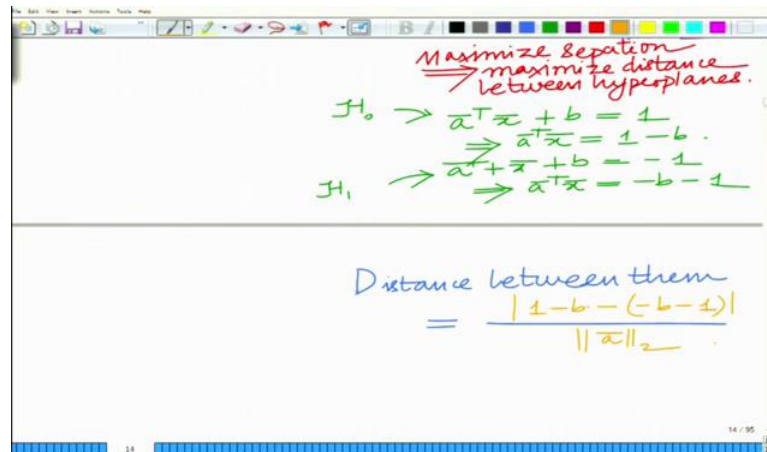 File Edit View Insert Actions Tools Help
Maximize Sepation
⟹ maximize distance
between hyperplanes.
H₀ → a̅ᵀx̅ + b = 1
⟹ a̅ᵀx̅ = 1 - b .
H₁ → a̅⁺ + x̅ + b = - 1
⟹ a̅ᵀx̅ = - b - 1
Distance between them
= | 1 - b - (- b - 1) |
|| a̅ ||₂ .
14 / 95
14